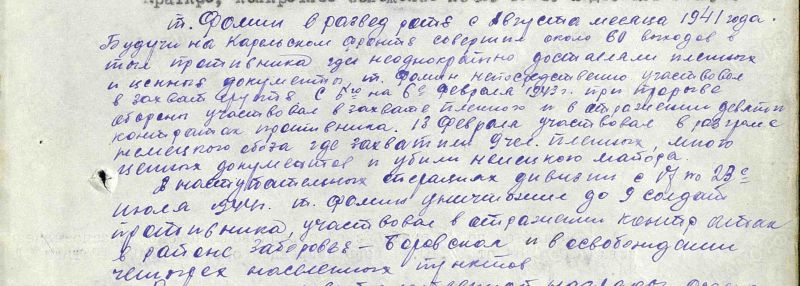 т. Фомин в развед роте с августа месяца 1941 года.
Будучи на Карельском фронте совершил около 60 выходов в
тыл противника где неоднократно доставляли пленных
и ценные документы, т. Фомин непосредственно участвовал
в захвате групп. С 5го на 6е февраля 1943 г. при прорыве
обороны участвовал в захвате пленного и в отражении девяти
контратак противника. 13 февраля участвовал в разгроме
немецкого обоза где захватили 9 чел. пленных, много
ценных документов и убили немецкого майора.
В наступательных операциях дивизии с 17 по 23е
июля 1944 г. т. Фомин уничтожил до 9 солдат
противника, участвовал в отражении контр атак
в районе Заборовье – Боровская и в освобождении
четырех населенных пунктов